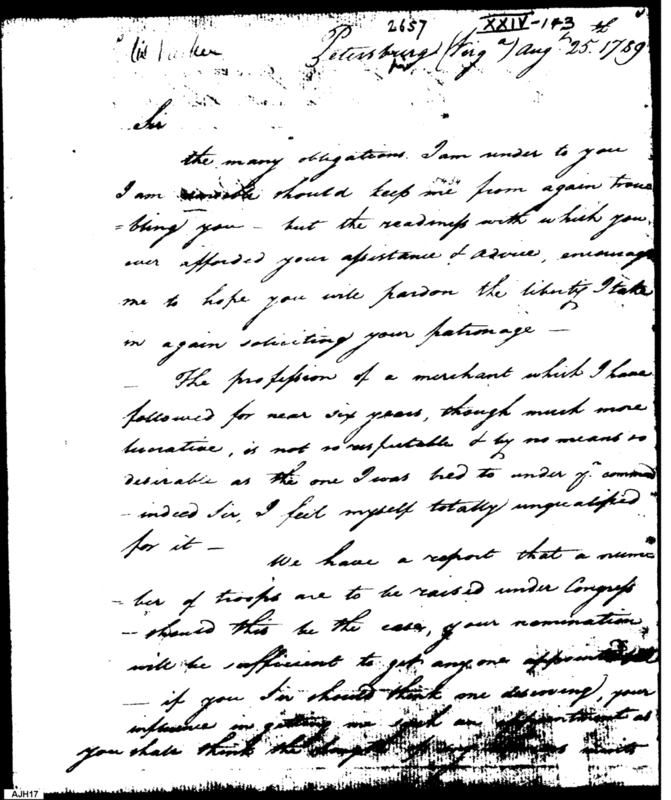 2657 XXIV-143
Petersburg (Virga) Augt 25th 1789
Sir
the many obligations I am under to you
I am sensible should keep me from again trou
=bling you - but the readiness with which you
ever afforded your assistance & advice, encourage
me to hope you will pardon the liberty I take
in again soliciting your patronage -
- The profession of a merchant which I have
followed for near six years, though much more
lucrative, is not so respectable & by no means so
desirable as the one I was bred to under yr command
- indeed Sir, I feel myself totally unqualified
for it -
We have a report that a num
- ber of troops are to be raised under Congress
- should this be the case, your nomination
will be sufficient to get any one appointed
- if you Sir should think me deserving, your
influence in getting me such an appointment as
you shall think the length of my services merits
AJH17